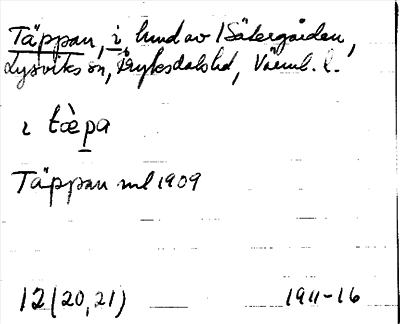 Täppan, i, hmd av 1 Sätergården,
Lysviks sn, Fryksdals hd, Värml. l.
ɩ tæ̀pa
Täppan ml 1909
12 (20, 21) 1911-16